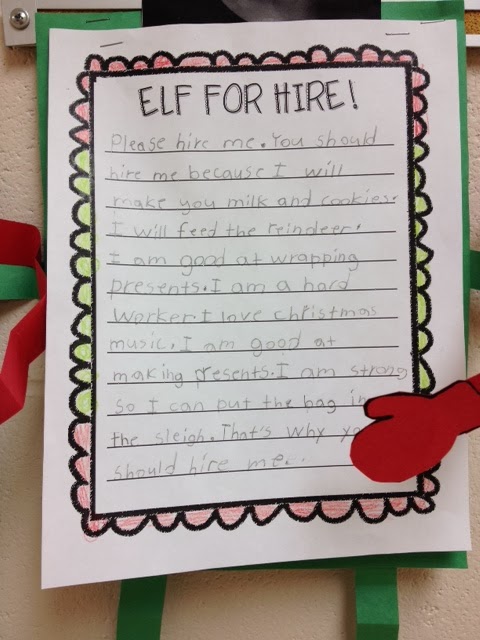 ELF FOR HIRE!
Please hire me. You should
hire me because I will
make you milk and cookies.
I will feed the reindeer.
I am good at wrapping
presents. I am a hard
worker. I love christmas
music. I am good at
making presents. I am strong
so I can put the bag in
the sleigh. That's why yo
should hire me..